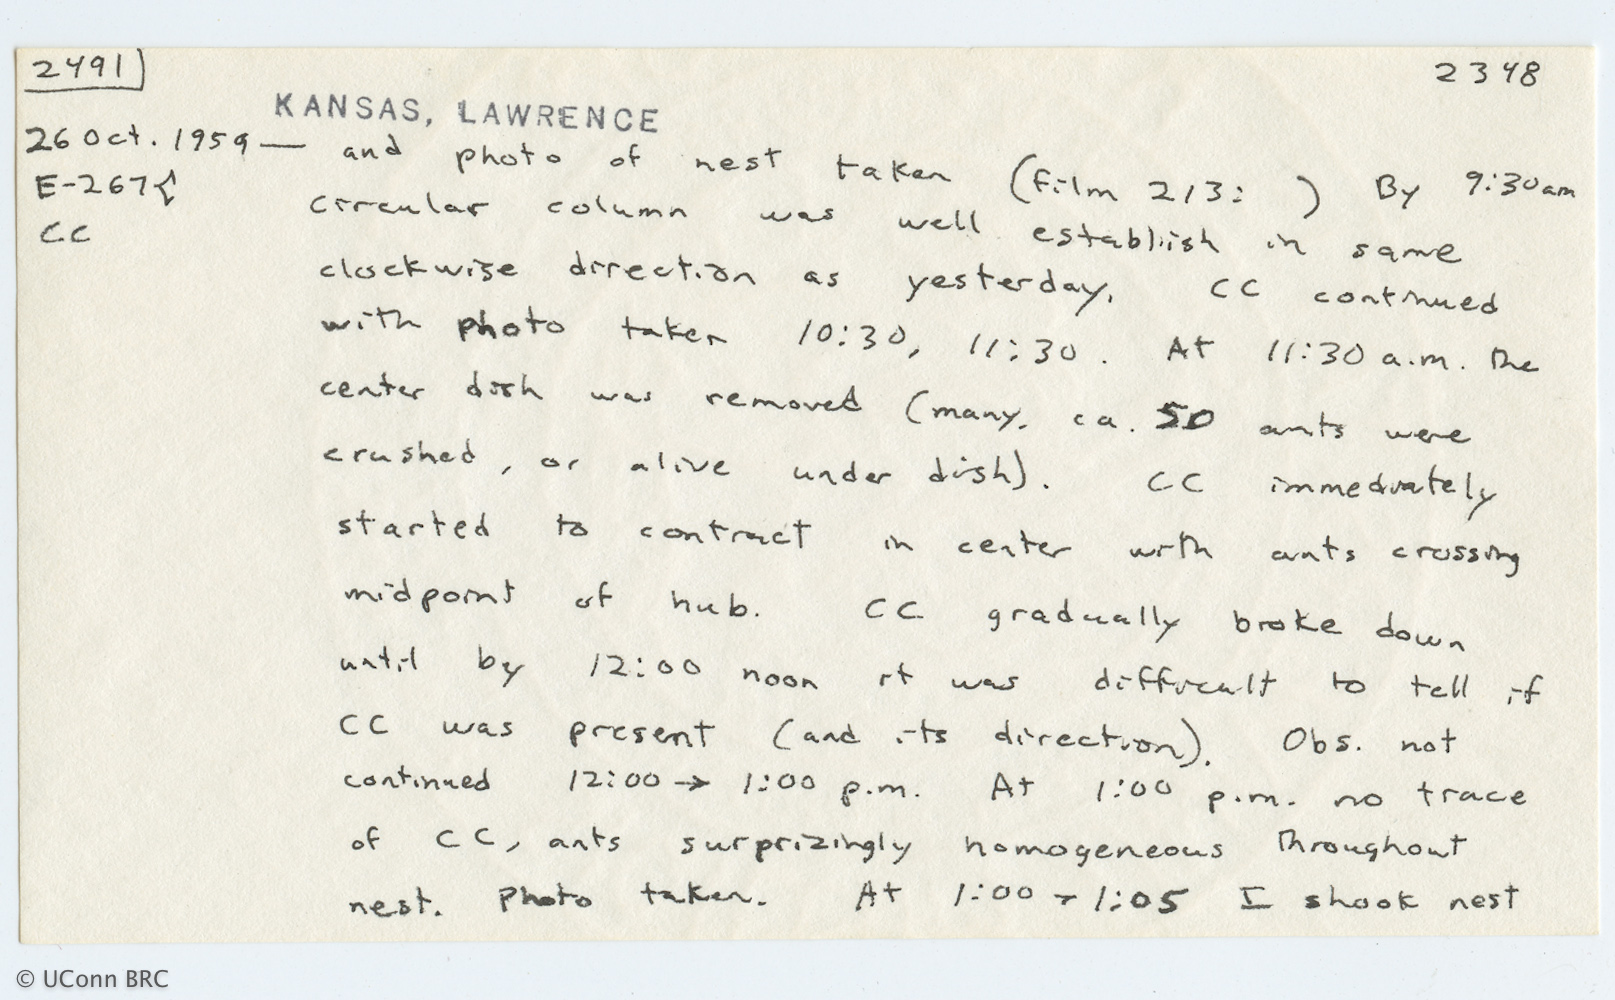 2491 2348
KANSAS, LAWRENCE
26 Oct. 1959 — and photo of nest taken (film 213: ) By 9:30am
E-267{ circular column was well establiish in same
CC clockwise direction as yesterday. CC continued
with photo taken 10:30, 11:30. At 11:30 a.m. the
center dish was removed (many, ca. 50 ants were
crushed, or alive under dish). CC immediately
started to contract in center with ants crossing
midpoint of hub. CC gradually broke down
until by 12:00 noon it was difficult to tell if
CC was present (and its direction). Obs. not
continued 12:00 → 1:00 p.m. At 1:00 p.m. no trace
of CC, ants surprizingly homogeneous throughout
nest. Photo taken. At 1:00 - 1:05 I shook nest
© UConn BRC